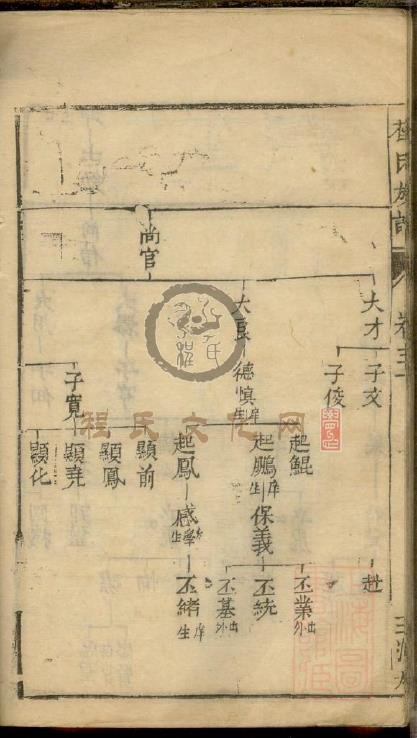 程氏族譜
卷三
尚官
大才
大辰
子文
子俊
德慎
庠生
子寬
起鯤
起鵬
庠生
保義
起鳳
感學
生
顯前
顯鳳
顯堯
顯化
丕業
出外
丕統
丕基
出外
丕緒
庠生
程氏文化网